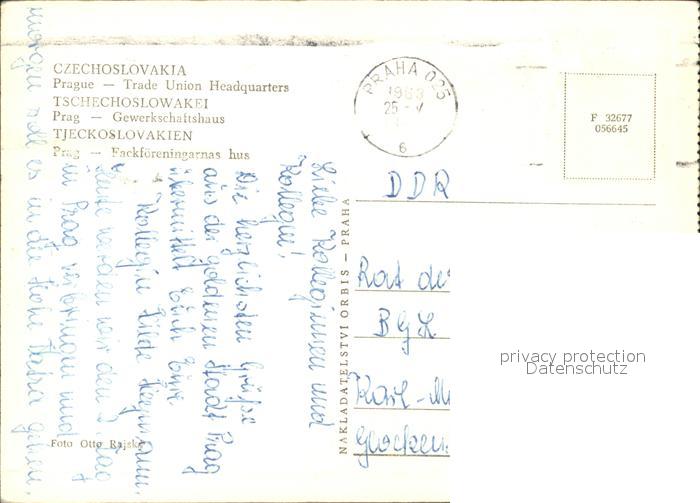 CZECHOSLOVAKIA
Prague — Trade Union Headquarters
TSCHECHOSLOWAKEI
Prag — Gewerkschaftshaus
TJECKOSLOVAKIEN
Prag — Fackföreningarnas hus
PRAHA 025
1963
25 - V
6
F 32677
056645
Liebe Kolleginnen und
Kollegen!
Die herzlichsten Grüße
aus der goldenen Stadt Prag
übermittelt Euch Eure
Kollegin Hilde
Heute werden wir den 2. Tag
in Prag verbringen und
morgen soll es in die Hohe Tatra gehen.
DDR
Rat de
BGL
Karl-M
Glocken
NAKLADATELSTVÍ ORBIS — PRAHA
Foto Otto Rajský
privacy protection
Datenschutz